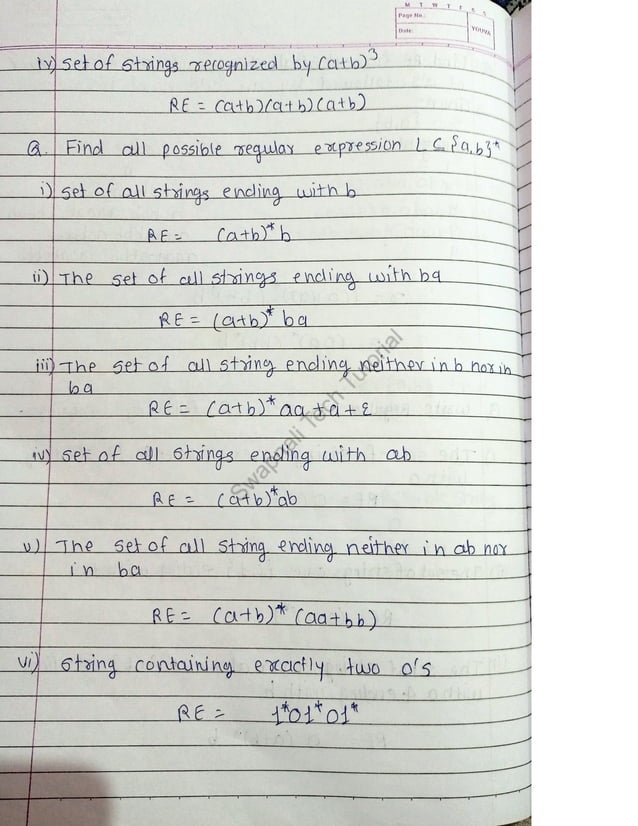 M T W T F S S
Page No.:
Date:
YOUVA
iv) set of strings recognized by (a+b)³
RE = (a+b)(a+b)(a+b)
Q. Find all possible regular expression L ⊂ {a,b}*
i) set of all strings ending with b
RE = (a+b)* b
ii) The set of all strings ending with ba
RE = (a+b)* ba
iii) The set of all string ending neither in b nor in
ba
RE = (a+b)* aa + a + ε
iv) set of all strings ending with ab
RE = (a+b)* ab
v) The set of all string ending neither in ab nor
in ba
RE = (a+b)* (aa+bb)
vi) string containing exactly two 0's
RE = 1*01*01*
Swapnali Tech Tutorial